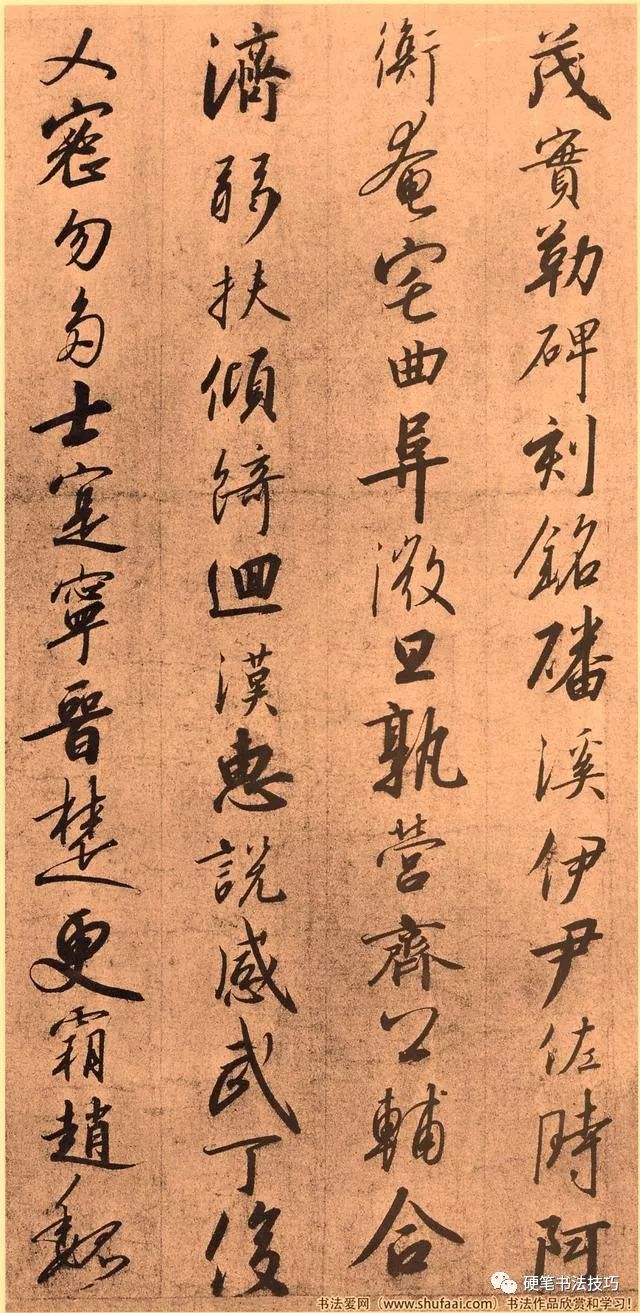 茂實勒碑刻銘磻溪伊尹佐時阿
衡奄宅曲阜微旦孰營齊公輔合
濟弱扶傾綺迴漢惠說感武丁俊
乂密勿多士寔寧晉楚更霸趙魏
硬笔书法技巧
书法爱网（www.shufaai.com）书法作品欣赏和学习！